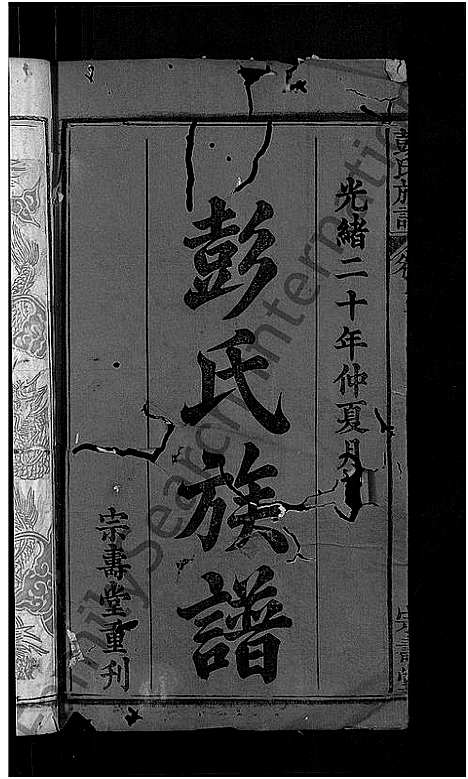 彭氏族譜
光緒二十年仲夏月
彭氏族譜
宗壽堂重刊
宗壽堂
FamilySearch International